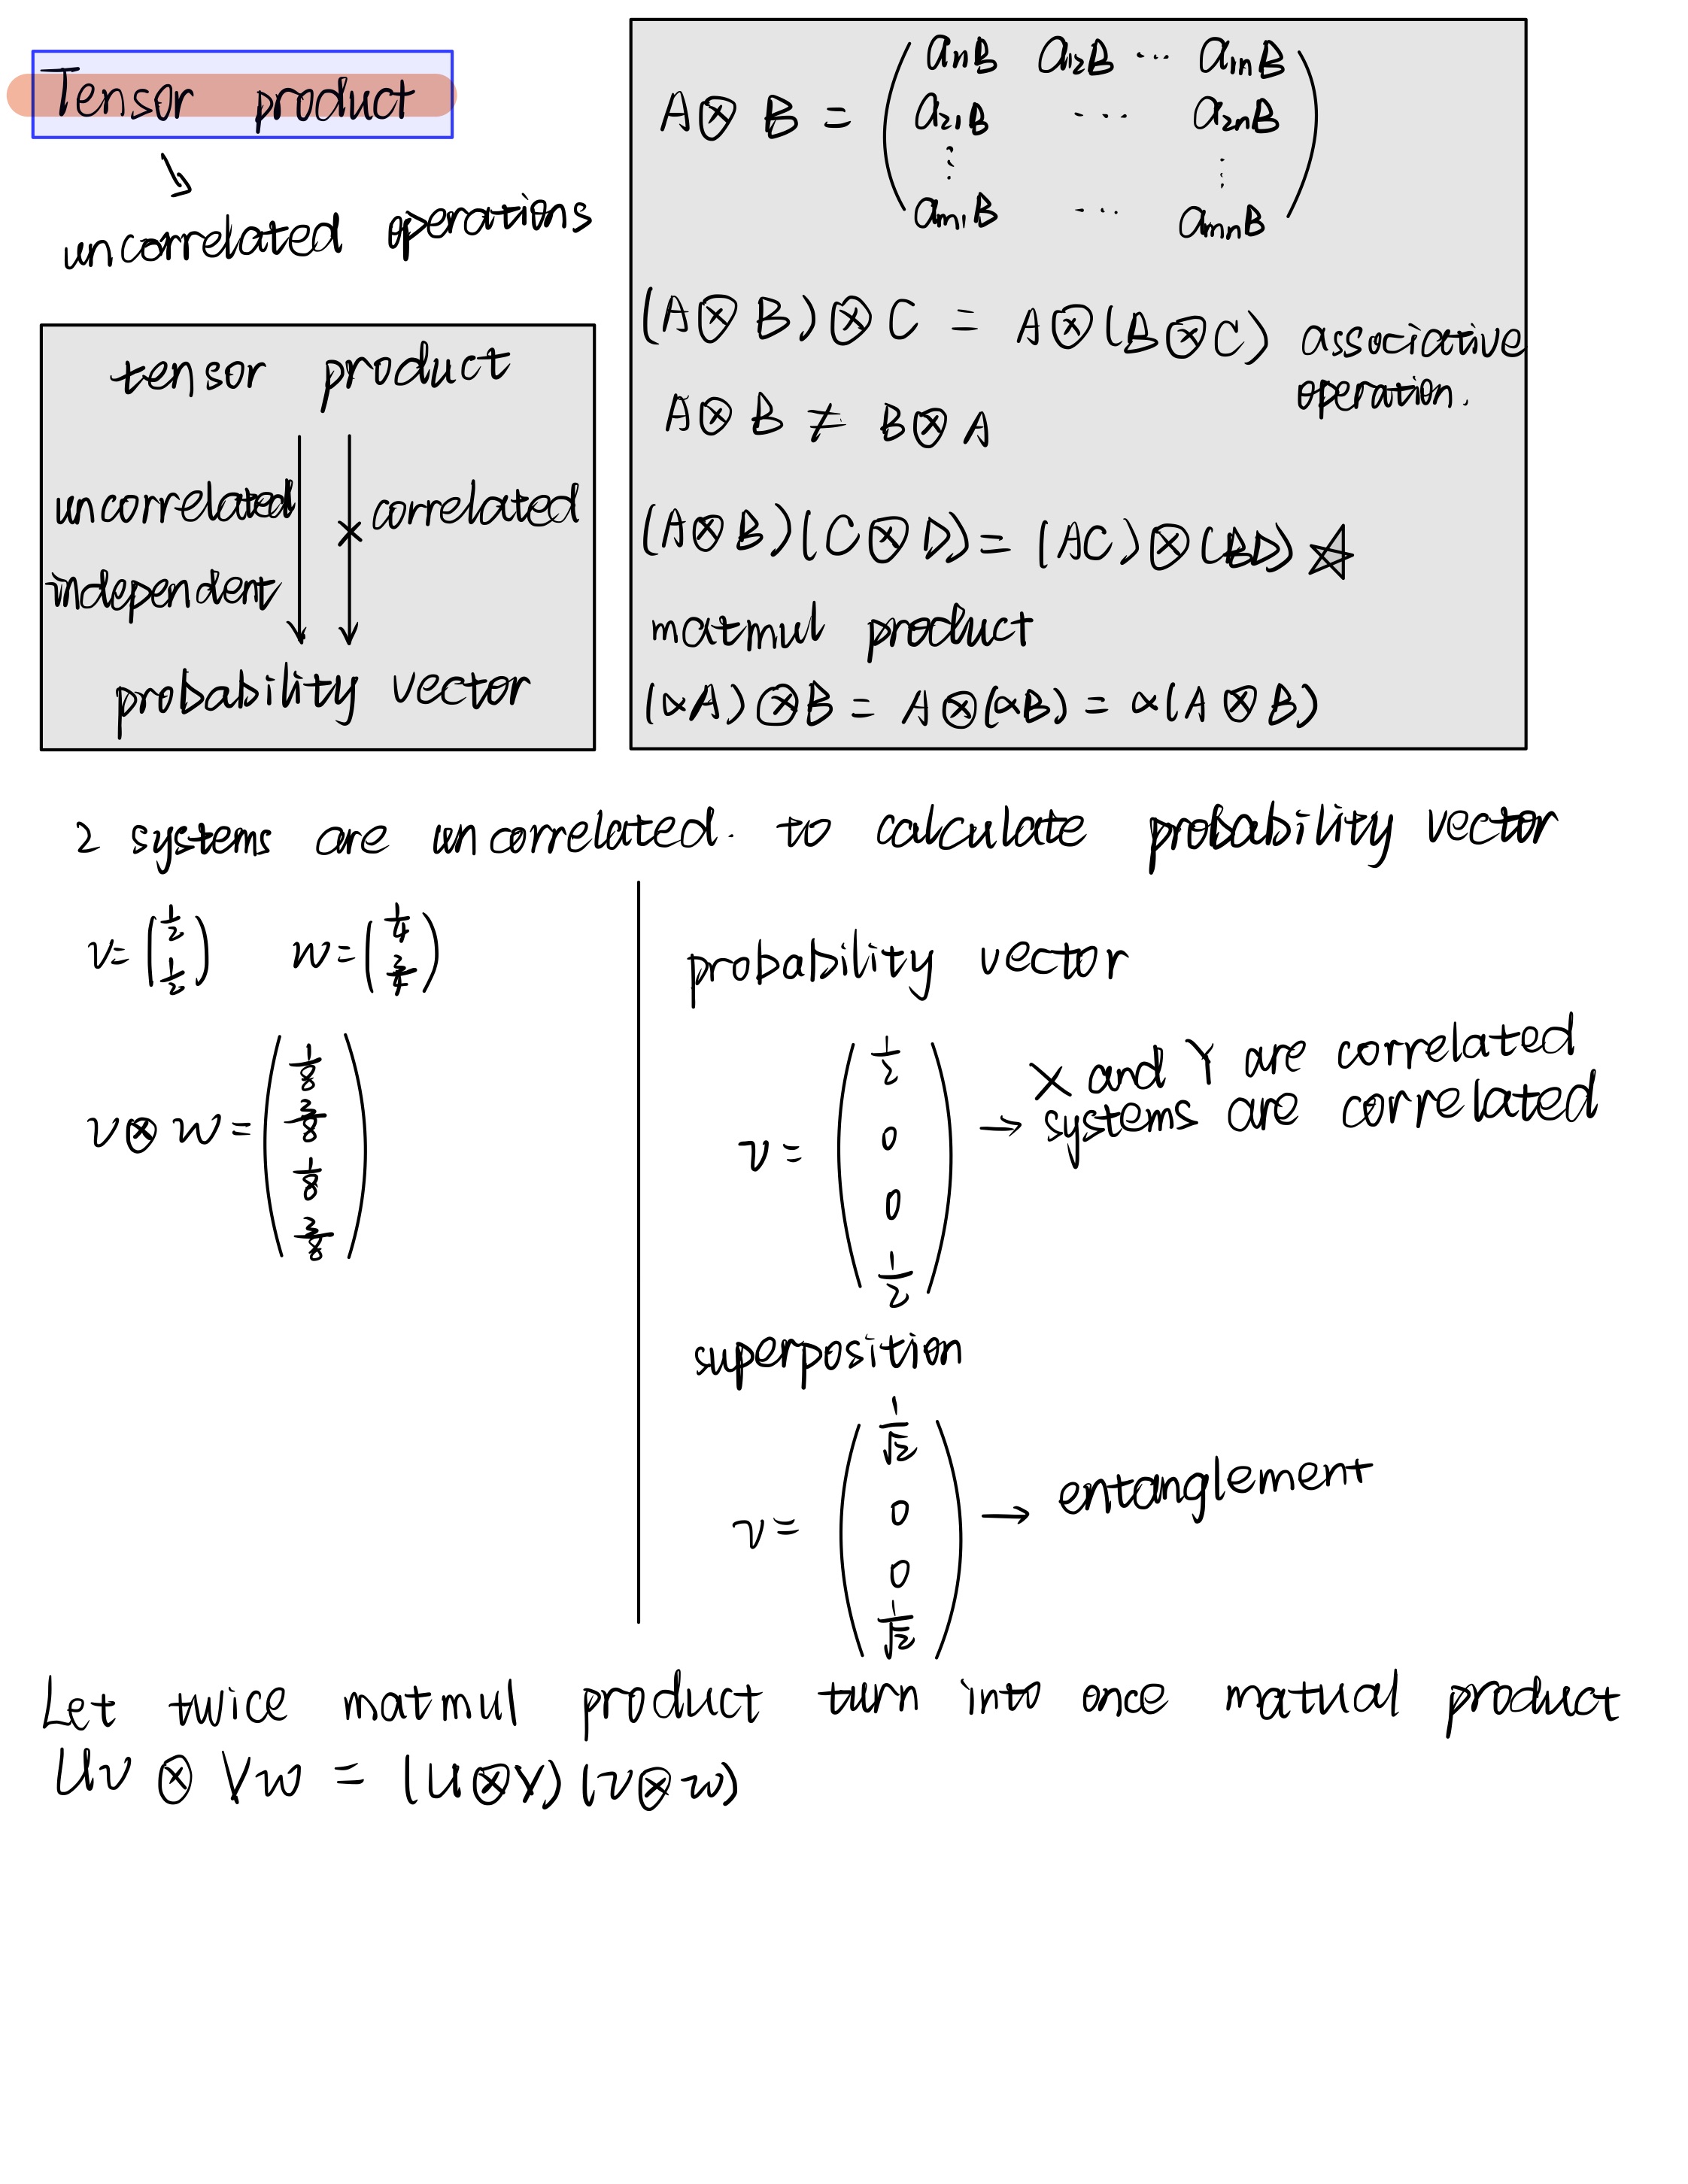 Tensor product
uncorrelated operations
tensor product
uncorrelated
correlated
independent
probability vector
A⊗B = ( a₁₁B a₁₂B ⋯ a₁ₙB
a₂₁B ⋯ a₂ₙB
⋮ ⋮
aₘ₁B ⋯ aₘₙB )
(A⊗B)⊗C = A⊗(B⊗C) associative
operation.
A⊗B ≠ B⊗A
(A⊗B)(C⊗D) = (AC)⊗(BD) ☆
matmul product
(αA)⊗B = A⊗(αB) = α(A⊗B)
2 systems are uncorrelated. to calculate probability vector
v = (1/2 1/2) w = (1/4 3/4)
v⊗w = (1/8 3/8 1/8 3/8)
probability vector
X and Y are correlated
v = (1/2 0 0 1/2) → systems are correlated
superposition
v = (1/√2 0 0 1/√2) → entanglement
Let twice matmul product turn into once matual product
Uv ⊗ Vw = (U⊗V)(v⊗w)